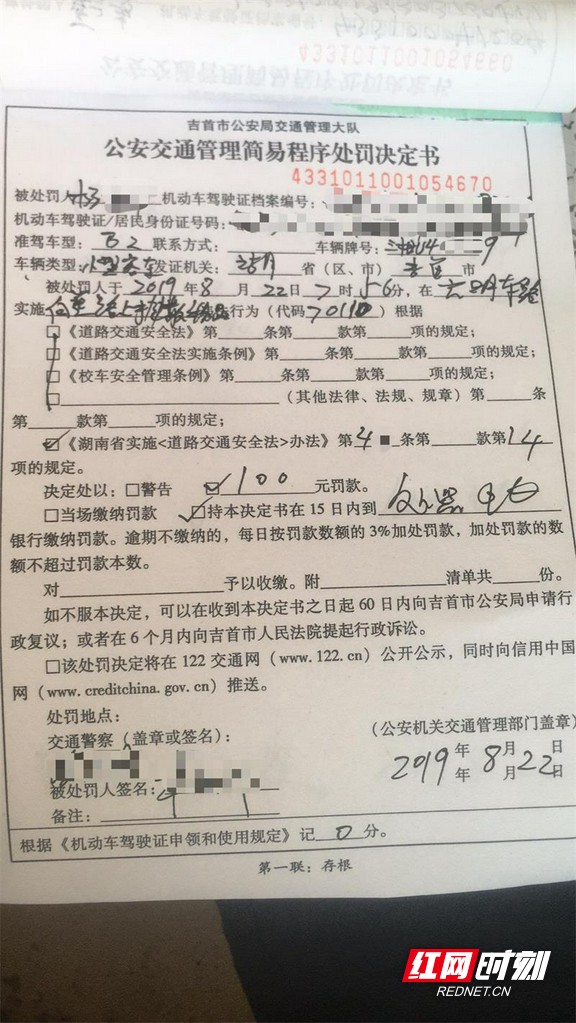 4331011001054660
公安交通管理简易程序处罚决定书
吉首市公安局交通管理大队
公安交通管理简易程序处罚决定书
4331011001054670
被处罚人 机动车驾驶证档案编号:
机动车驾驶证/居民身份证号码:
准驾车型: B2 联系方式: 车辆牌号: 湘U4 9
车辆类型: 小型客车 发证机关: 省(区、市) 吉首 市
被处罚人于 2019 年 8 月 22 日 7 时 56分,在
实施 行为(代码 70110 )根据
□《道路交通安全法》第 条第 款第 项的规定;
□《道路交通安全法实施条例》第 条第 款第 项的规定;
□《校车安全管理条例》第 条第 款第 项的规定;
□ (其他法律、法规、规章)第 条
第 款第 项的规定;
☑《湖南省实施<道路交通安全法>办法》第 4 条第 款第 14
项的规定。
决定处以:□警告 ☑ 100 元罚款。
□当场缴纳罚款 ☑持本决定书在 15 日内到
银行缴纳罚款。逾期不缴纳的,每日按罚款数额的 3%加处罚款,加处罚款的数
额不超过罚款本数。
对 予以收缴。附 清单共 份。
如不服本决定,可以在收到本决定书之日起 60 日内向吉首市公安局申请行
政复议;或者在 6 个月内向吉首市人民法院提起行政诉讼。
□该处罚决定将在 122 交通网(www.122.cn)公开公示,同时向信用中国
网(www.creditchina.gov.cn)推送。
处罚地点:
交通警察(盖章或签名): (公安机关交通管理部门盖章)
2019 年 8 月 22 日
年 月 日
被处罚人签名:
备注:
根据《机动车驾驶证申领和使用规定》记 0 分。
第一联:存根
红网时刻
REDNET.CN